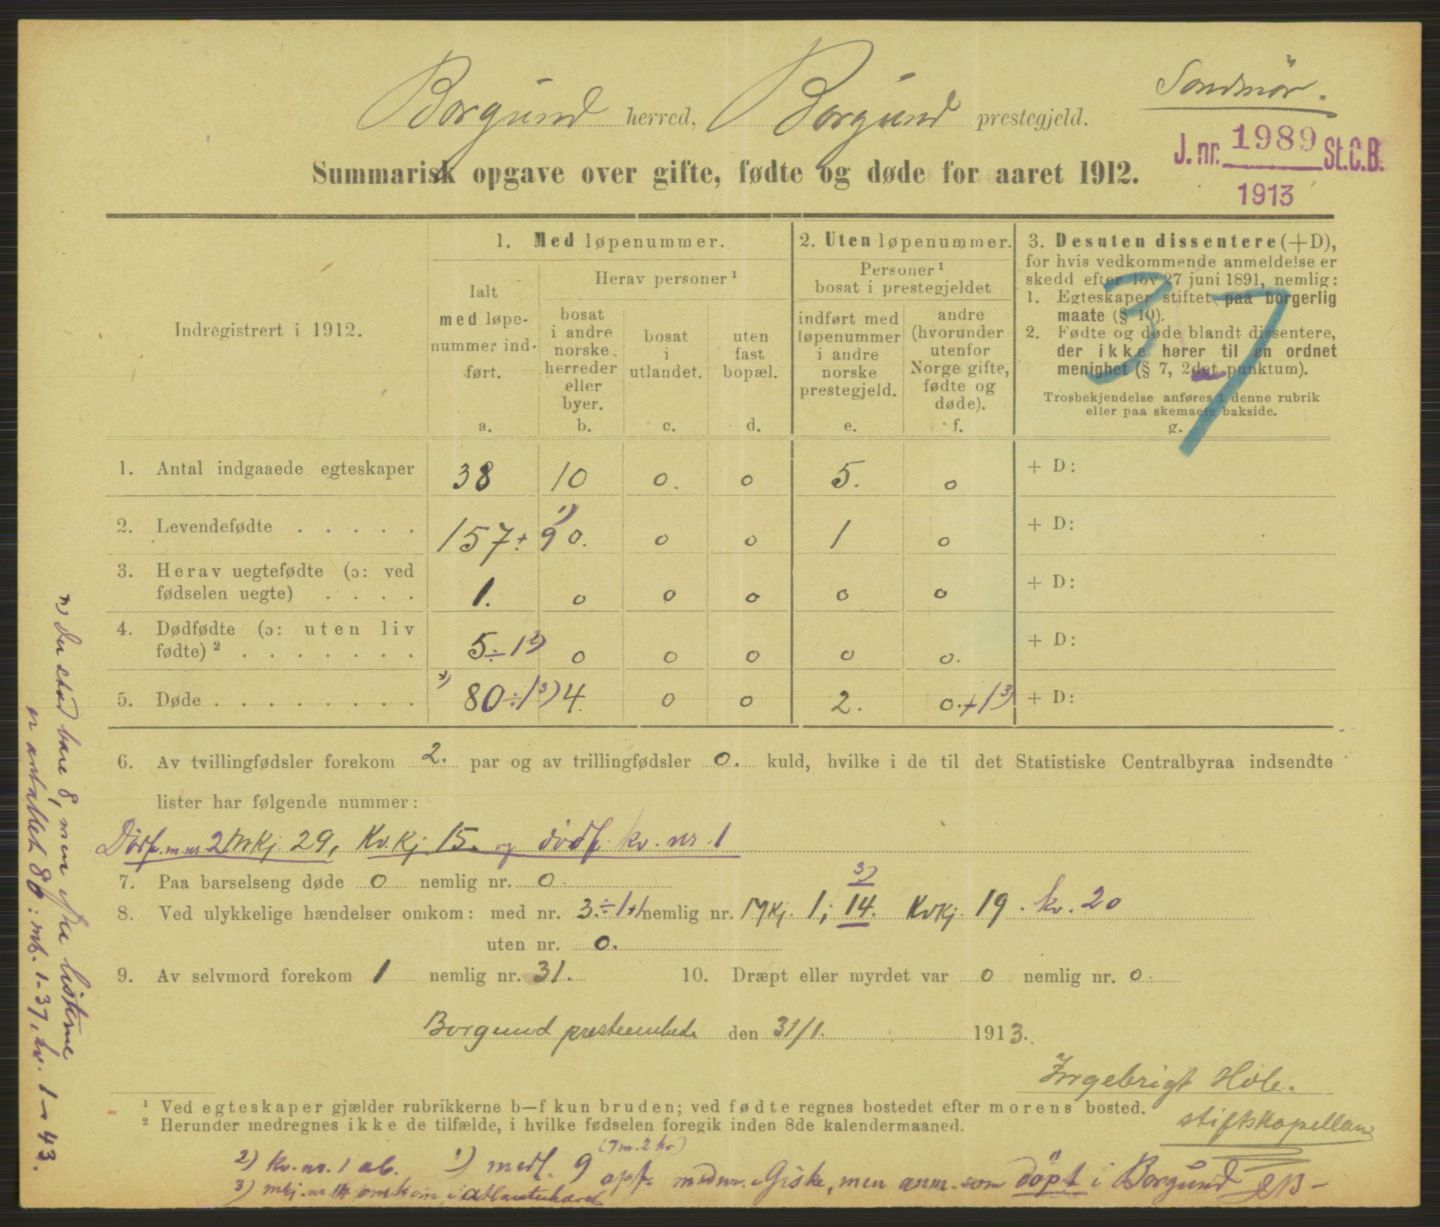 Borgund herred, Borgund prestegjeld.
Søndmør.
J. nr. 1989 St.C.B.
1913
Summarisk opgave over gifte, fødte og døde for aaret 1912.
37
Indregistrert i 1912.
1. Med løpenummer.
Ialt med løpenummer indført.
a.
Herav personer¹
bosat i andre norske herreder eller byer.
b.
bosat i utlandet.
c.
uten fast bopæl.
d.
2. Uten løpenummer.
Personer¹ bosat i prestegjeldet
indført med løpenummer i andre norske prestegjeld.
e.
andre (hvorunder utenfor Norge gifte, fødte og døde).
f.
3. Desuten dissentere (+D),
for hvis vedkommende anmeldelse er
skedd efter lov 27 juni 1891, nemlig:
1. Egteskaper stiftet paa borgerlig
maate (§ 10).
2. Fødte og døde blandt dissentere,
der ikke hører til en ordnet
menighet (§ 7, 2det punktum).
Trosbekjendelse anføres i denne rubrik
eller paa skemaets bakside.
g.
1. Antal indgaaede egteskaper 38 10 0. 0 5. 0 + D:
2. Levendefødte . . . . . 157 + 9 ¹) 0. 0 0 1 0 + D:
3. Herav uegtefødte (ɔ: ved
fødselen uegte) . . . . 1. 0 0 0 0 0 + D:
4. Dødfødte (ɔ: uten liv
fødte)² . . . . . . . 5 ÷ 1 ²) 0 0 0 0 0. + D:
5. Døde . . . . . . . . 80 ÷ 1 ³) 4. 0 0 2. 0. + 1 ³) + D:
6. Av tvillingfødsler forekom 2. par og av trillingfødsler 0. kuld, hvilke i de til det Statistiske Centralbyraa indsendte
lister har følgende nummer:
Dødf. m nr 2 Mkj. 29, Kv.kj. 15. og dødf. kv. nr. 1
7. Paa barselseng døde 0 nemlig nr. 0.
8. Ved ulykkelige hændelser omkom: med nr. 3. ÷ 1 + 1 nemlig nr. Mkj. 1; 14. ³) Kvkj. 19. kv. 20
uten nr. 0.
9. Av selvmord forekom 1 nemlig nr. 31. 10. Dræpt eller myrdet var 0 nemlig nr. 0.
Borgund presteembede den 31/1. 1913.
Ingebrigt Hole.
stiftskapellan
¹ Ved egteskaper gjælder rubrikkerne b—f kun bruden; ved fødte regnes bostedet efter morens bosted.
² Herunder medregnes ikke de tilfælde, i hvilke fødselen foregik inden 8de kalendermaaned.
2) kv. nr. 1 ab.
1) medf. 9 (7 m. 2 kv) opf. Giske, men anm. som døpt i Borgund
3) mkj. nr 14 omkom i Atlanterhavet
*) Der stod bare 8, men efter listerne
er antallet 80: mk. 1-37, kv. 1-43.